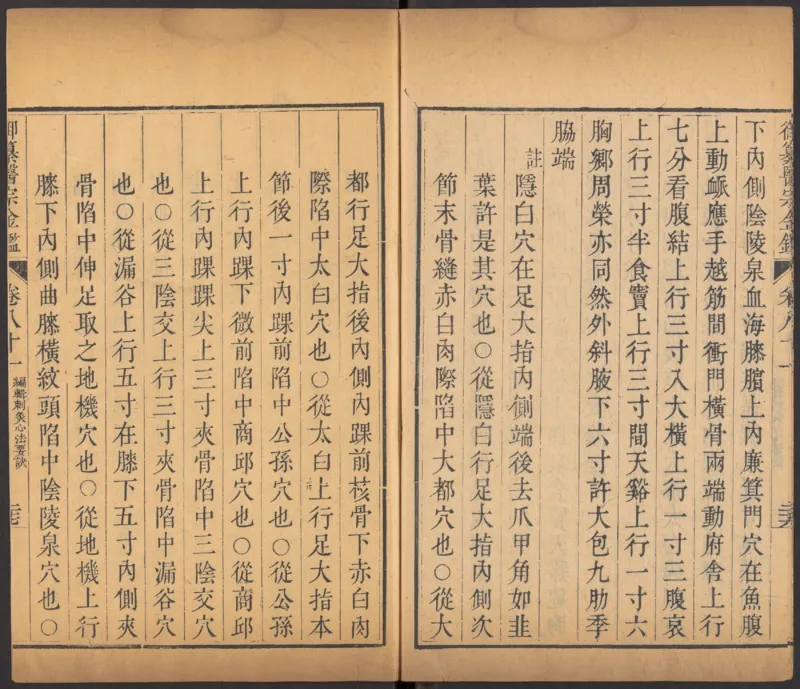 下內側陰陵泉血海膝臏上內廉箕門穴在魚腹
上動衇應手越筋間衝門橫骨兩端動府舍上行
七分看腹結上行三寸入大橫上行一寸三腹哀
上行三寸半食竇上行三寸間天谿上行一寸六
胸鄉周榮亦同然外斜腋下六寸許大包九肋季
脇端
註隱白穴在足大指內側端後去爪甲角如韭
葉許是其穴也○從隱白行足大指內側次
節末骨縫赤白肉際陷中大都穴也○從大
都行足大指後內側內踝前核骨下赤白肉
際陷中太白穴也○從太白上行足大指本
節後一寸內踝前陷中公孫穴也○從公孫
上行內踝下微前陷中商邱穴也○從商邱
上行內踝踝尖上三寸夾骨陷中三陰交穴
也○從三陰交上行三寸夾骨陷中漏谷穴
也○從漏谷上行五寸在膝下五寸內側夾
骨陷中伸足取之地機穴也○從地機上行
膝下內側曲膝橫紋頭陷中陰陵泉穴也○
御纂醫宗金鑑
卷八十一
編輯刺灸心法要訣